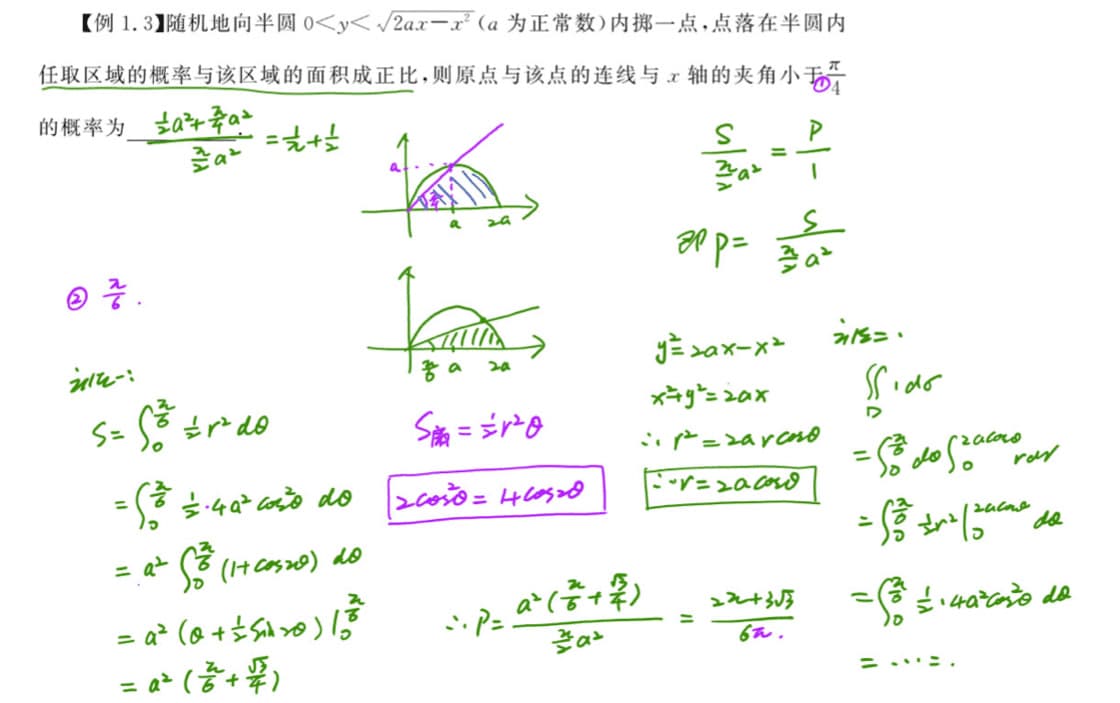 【例 1.3】随机地向半圆 0<y<√(2ax−x²) (a 为正常数)内掷一点,点落在半圆内
任取区域的概率与该区域的面积成正比,则原点与该点的连线与 x 轴的夹角小于 π/4
①
的概率为 (½a²+π/4 a²)/(π/2 a²) = 1/π+1/2
a
π/4
a 2a
S/(π/2 a²) = P/1
即 P= S/(π/2 a²)
② π/6 .
π/6 a 2a
法一:
S=∫₀^(π/6) ½r²dθ
=∫₀^(π/6) ½·4a²cos²θ dθ
= a² ∫₀^(π/6) (1+cos2θ) dθ
= a² (θ+½sin2θ) |₀^(π/6)
= a² (π/6+√3/4)
S扇=½r²θ
2cos²θ = 1+cos2θ
y²=2ax−x²
x²+y²=2ax
∴ r²=2arcosθ
∴ r=2acosθ
∴ P= a²(π/6+√3/4)/(π/2 a²) = (2π+3√3)/(6π).
法二:
∬_D 1dσ
=∫₀^(π/6) dθ∫₀^(2acosθ) rdr
=∫₀^(π/6) ½r²|₀^(2acosθ) dθ
=∫₀^(π/6) ½·4a²cos²θ dθ
= ··· = .